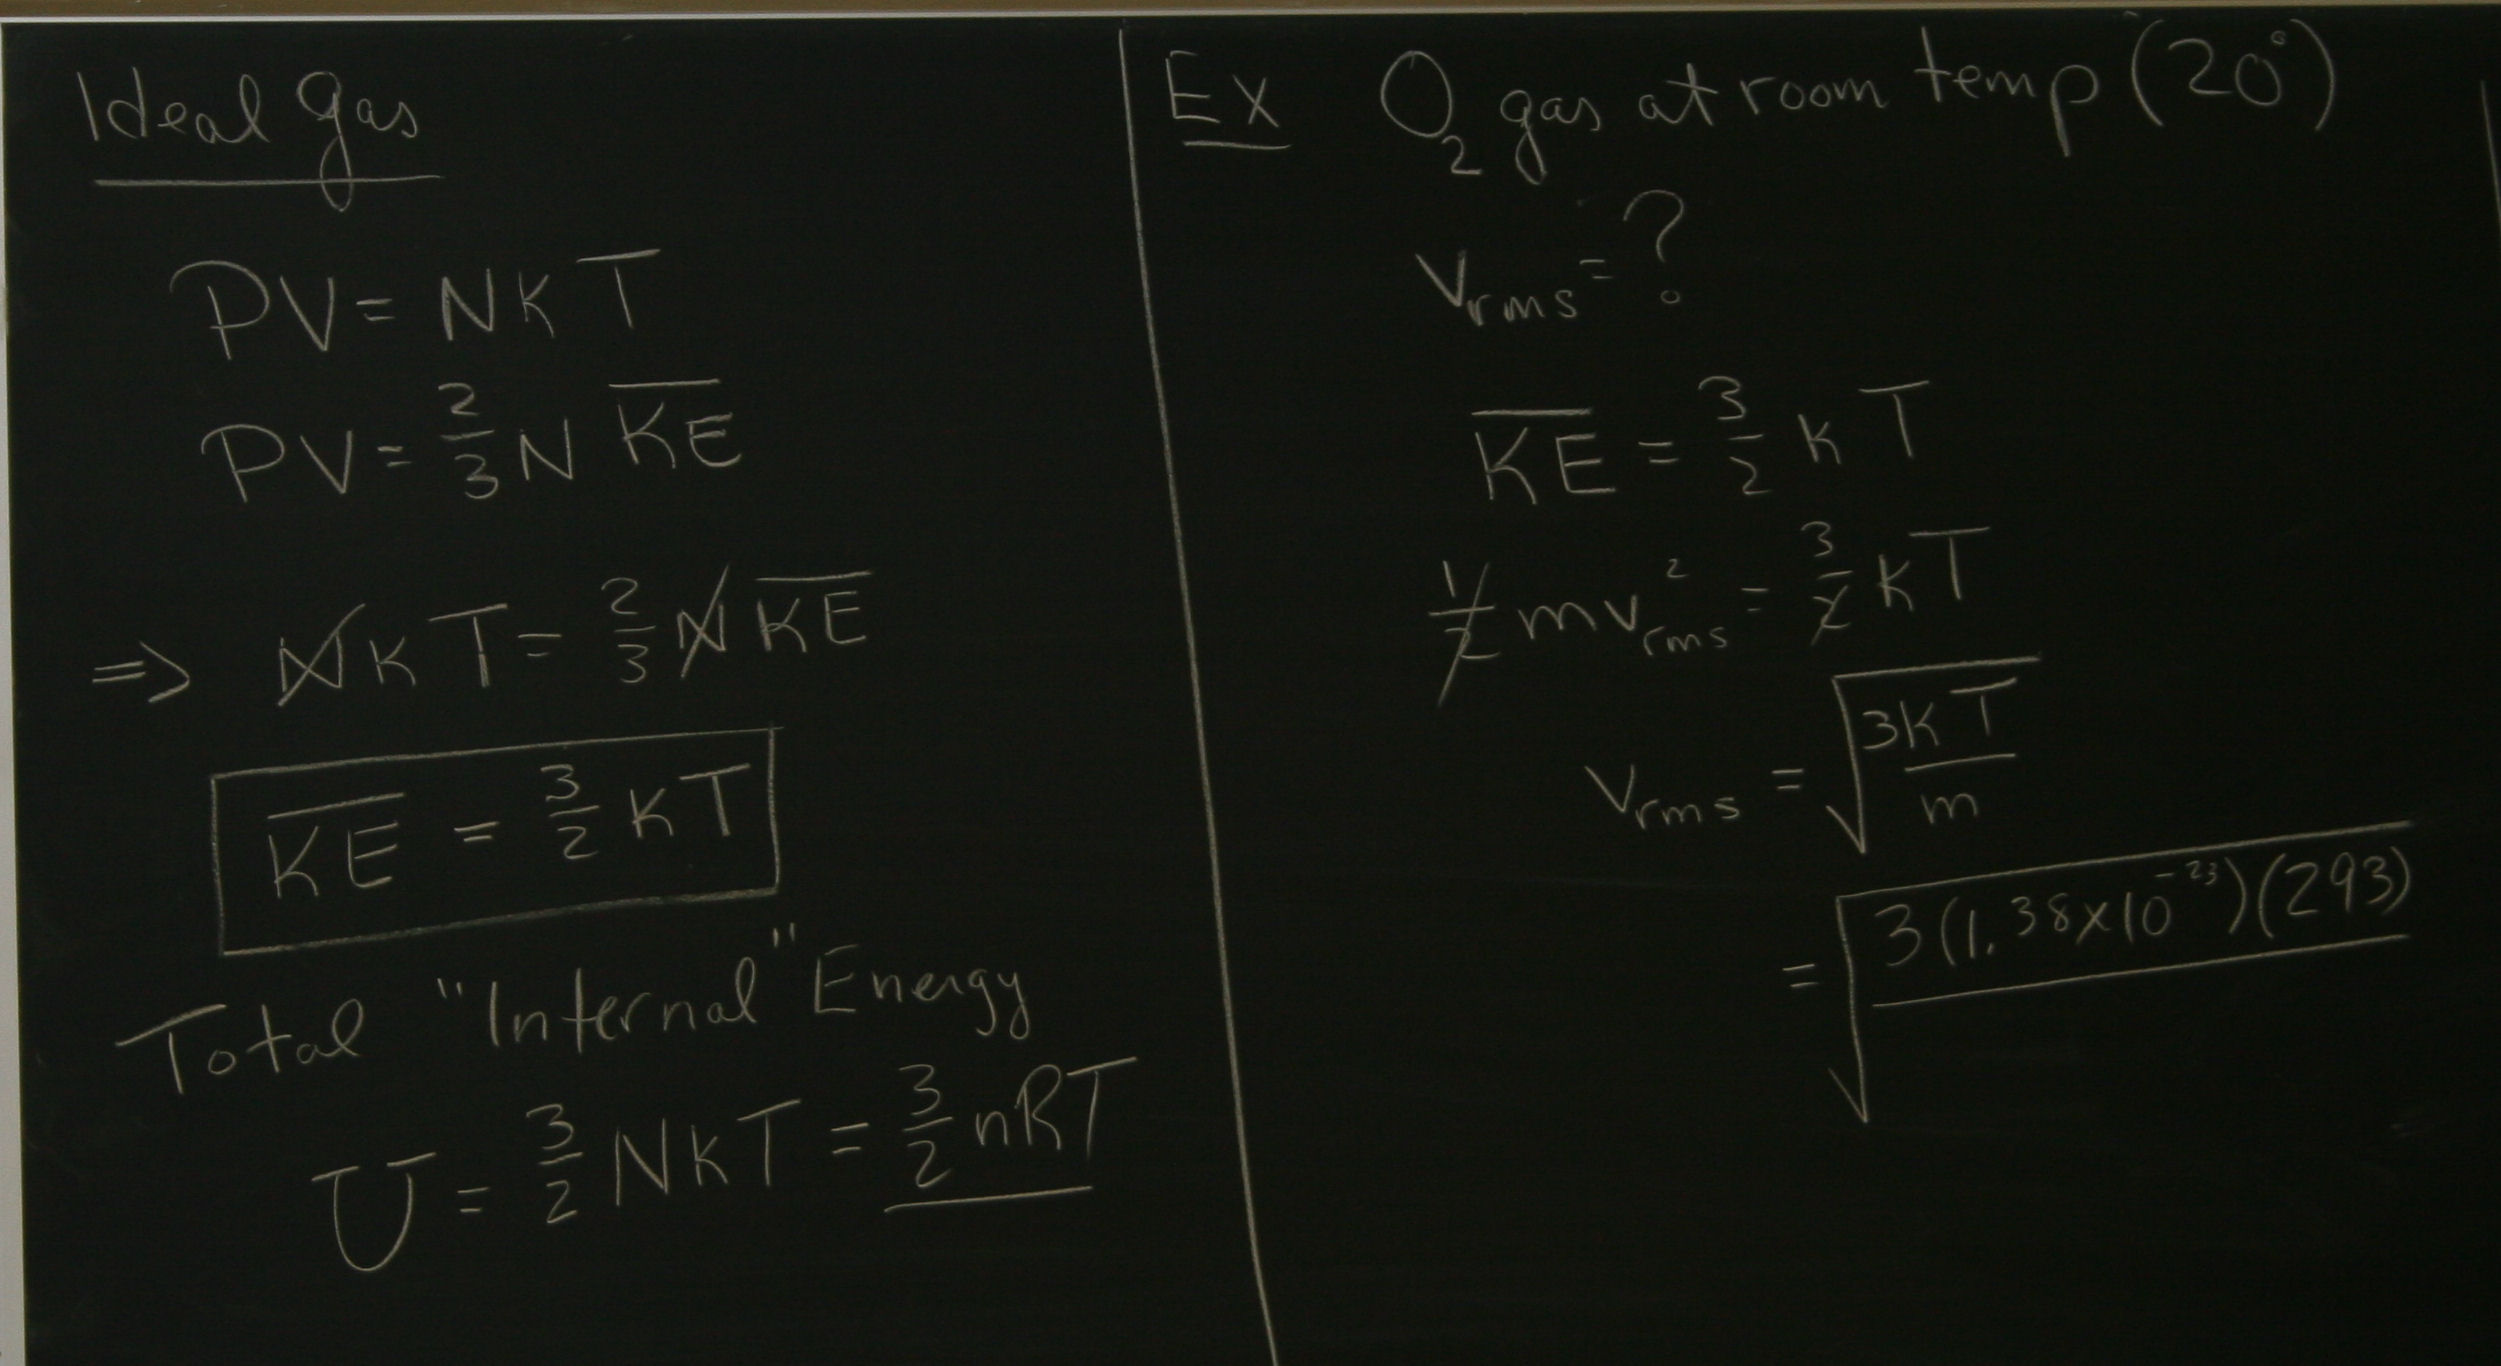 Ideal gas
PV = NkT
PV = 2/3 N K̅E̅
=> NkT = 2/3 N K̅E̅
K̅E̅ = 3/2 kT
Total "Internal" Energy
U = 3/2 NkT = 3/2 nRT
Ex O₂ gas at room temp (20°)
v_rms = ?
K̅E̅ = 3/2 kT
1/2 mv²_rms = 3/2 kT
v_rms = √(3kT/m)
= √(3(1.38x10⁻²³)(293)/ )